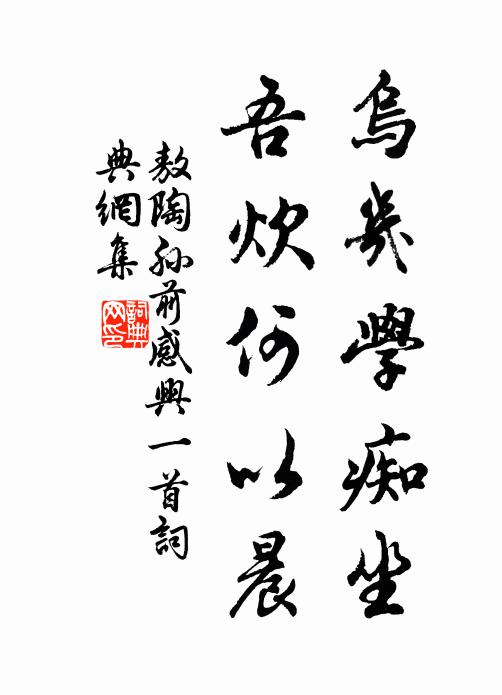 烏幾學痴坐
吾炊何以晨
敖陶孫前感興一首詞
典網集
詞典
網印